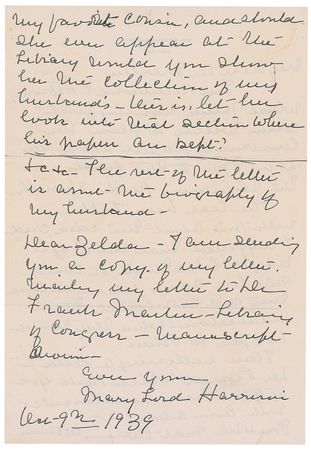 my favorite cousin, and should
she ever appear at the
Library would you show
her the collection of my
husband's - this is, let her
look into that section where
his papers are kept?
&c &c - The rest of the letter
is about the biography of
my husband -
Dear Zelda - I am sending
you a copy of my letter.
mailing my letter to Dr
Martin - Library
of Congress - Manuscript
Ever Yours
Mary Lord Harrison
9th 1939